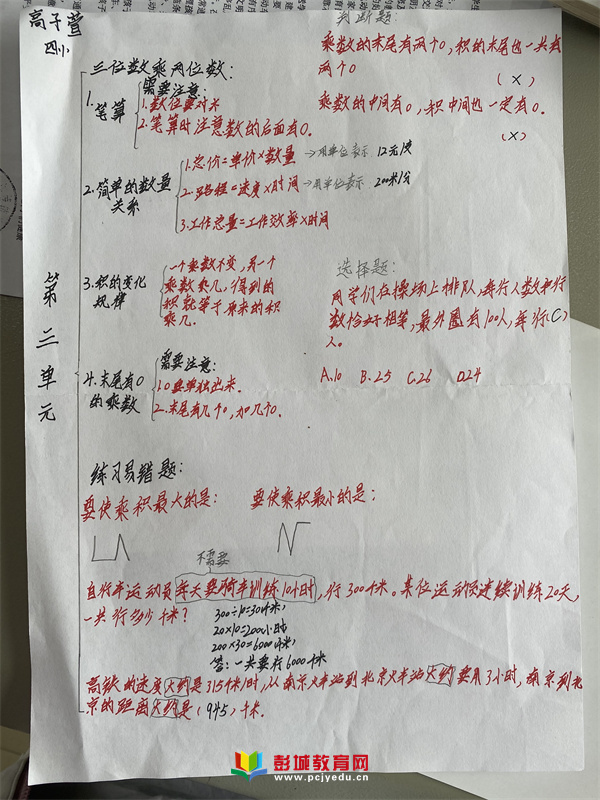 高子萱
四小
第三单元
三位数乘两位数:
1.笔算
需要注意:
1.数位要对齐
2.笔算时注意数的后面有0.
2.简单的数量
关系
1.总价=单价×数量 →用单位表示 12元/支
2.路程=速度×时间 →用单位表示 200米/分
3.工作总量=工作效率×时间
3.积的变化
规律
一个乘数不变,另一个
乘数乘几,得到的
积就等于原来的积
乘几.
4.末尾有0
的乘数
需要注意:
1.0要单独出来.
2.末尾有几个0,加几个0.
判断题:
乘数的末尾有两个0,积的末尾也一共有
两个0
(×)
乘数的中间有0,积中间也一定有0.
(×)
选择题:
同学们在操场上排队,每行人数和行
数恰好相等,最外圈有100人,每行(C)
人。
A.10 B.25 C.26 D.24
练习易错题:
要使乘积最大的是: 要使乘积最小的是:
不需要
自行车运动员每天要骑车训练10小时,行300千米。某位运动员连续训练20天,
一共行多少千米?
300÷10=30千米/
20×10=200小时
200×30=6000千米/
答:一共要行6000千米
高铁的速度大约是315千米/时,从南京火车站到北京火车站大约要用3小时,南京到北
京的距离大约是(945)千米.
彭城教育网
www.pcjyedu.cn